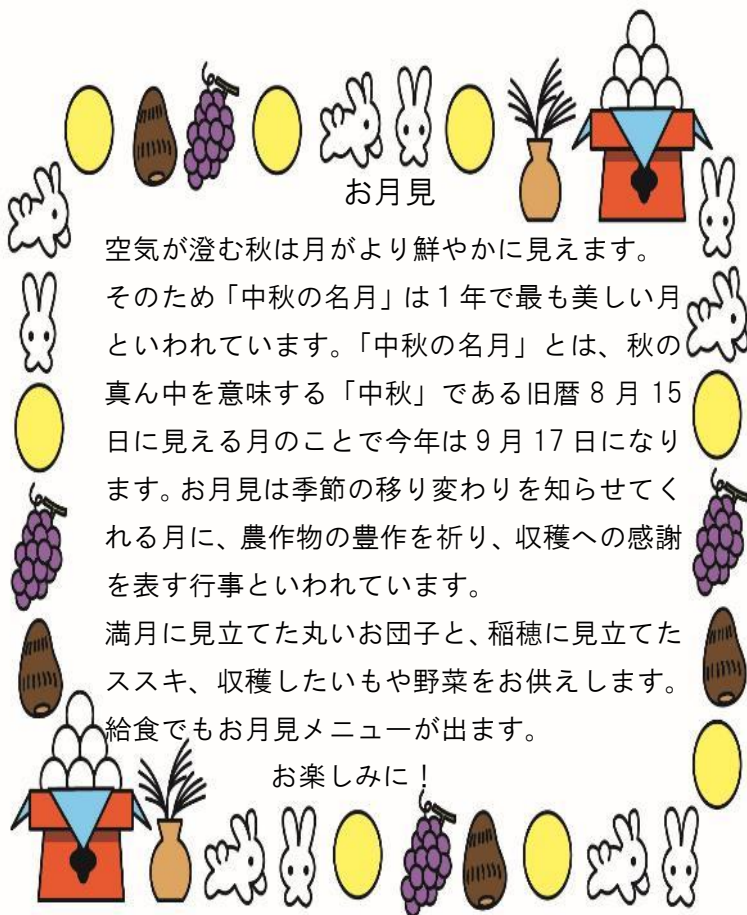 お月見
空気が澄む秋は月がより鮮やかに見えます。
そのため「中秋の名月」は1年で最も美しい月
といわれています。「中秋の名月」とは、秋の
真ん中を意味する「中秋」である旧暦8月15
日に見える月のことで今年は9月17日になり
ます。お月見は季節の移り変わりを知らせてく
れる月に、農作物の豊作を祈り、収穫への感謝
を表す行事といわれています。
満月に見立てた丸いお団子と、稲穂に見立てた
ススキ、収穫したいもや野菜をお供えします。
給食でもお月見メニューが出ます。
お楽しみに!